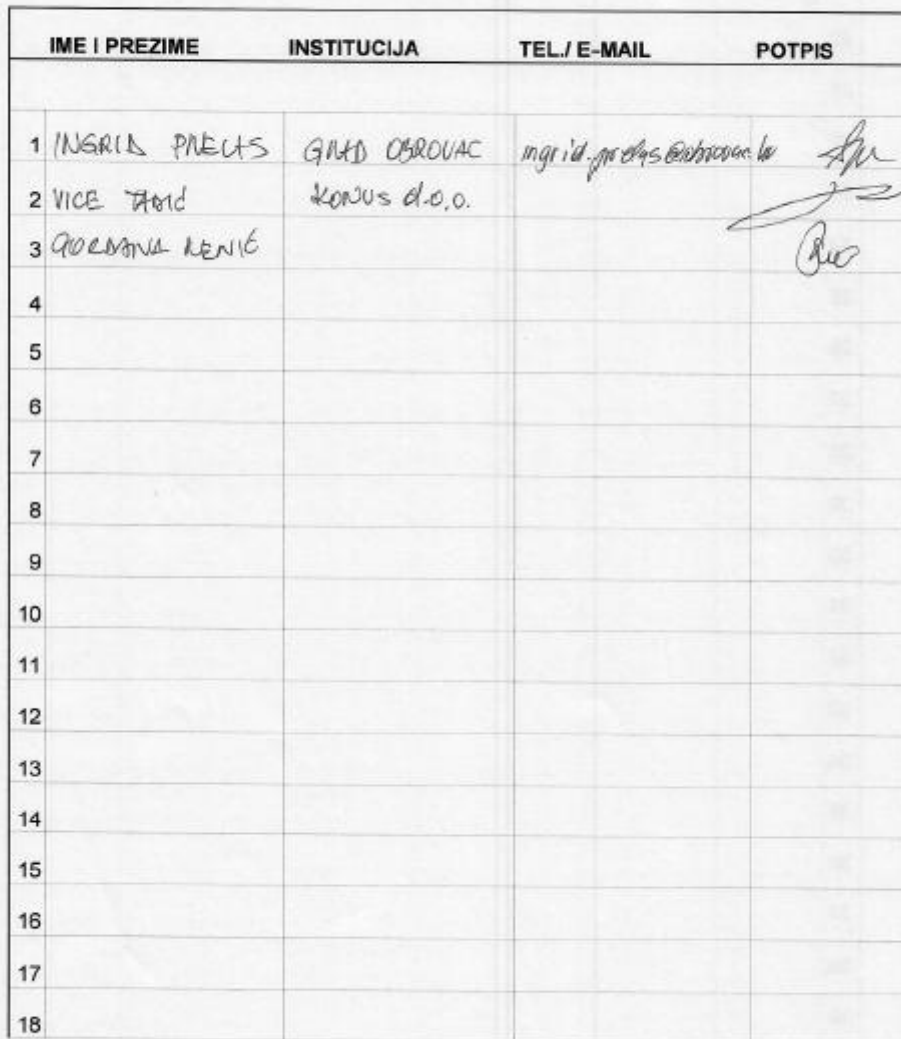 IME I PREZIME INSTITUCIJA TEL./ E-MAIL POTPIS
1 INGRID PRELAS GRAD OBROVAC ingrid.prelas@obrovac.hr
2 VICE KONUS d.o.o.
3 GORDANA
4
5
6
7
8
9
10
11
12
13
14
15
16
17
18